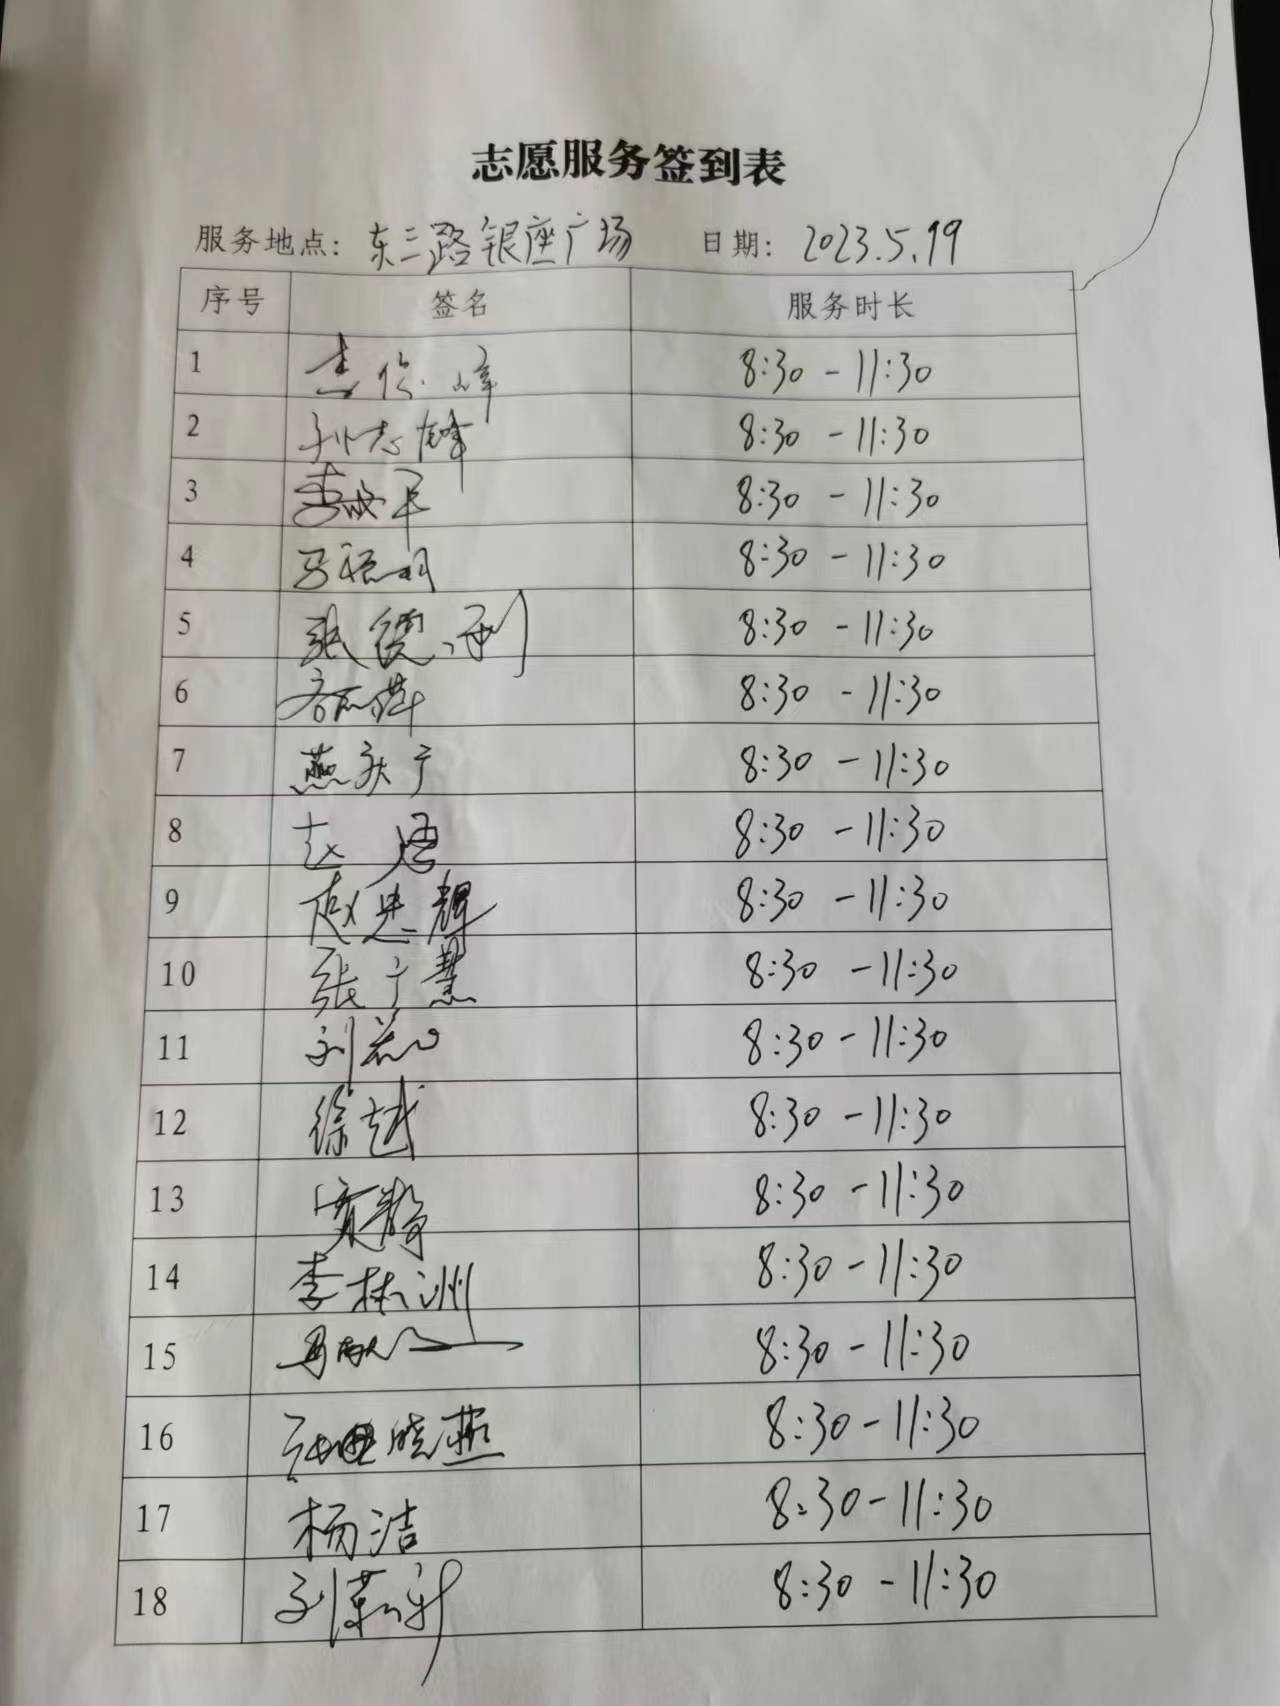 志愿服务签到表
服务地点：东三路银座广场 日期：2023.5.19
序号 签名 服务时长
1 8:30-11:30
2 孙志锋 8:30-11:30
3 8:30-11:30
4 马聪明 8:30-11:30
5 张德利 8:30-11:30
6 8:30-11:30
7 燕庆广 8:30-11:30
8 赵 8:30-11:30
9 赵思辉 8:30-11:30
10 张广慧 8:30-11:30
11 8:30-11:30
12 徐越 8:30-11:30
13 8:30-11:30
14 李林洲 8:30-11:30
15 8:30-11:30
16 晓燕 8:30-11:30
17 杨洁 8:30-11:30
18 8:30-11:30